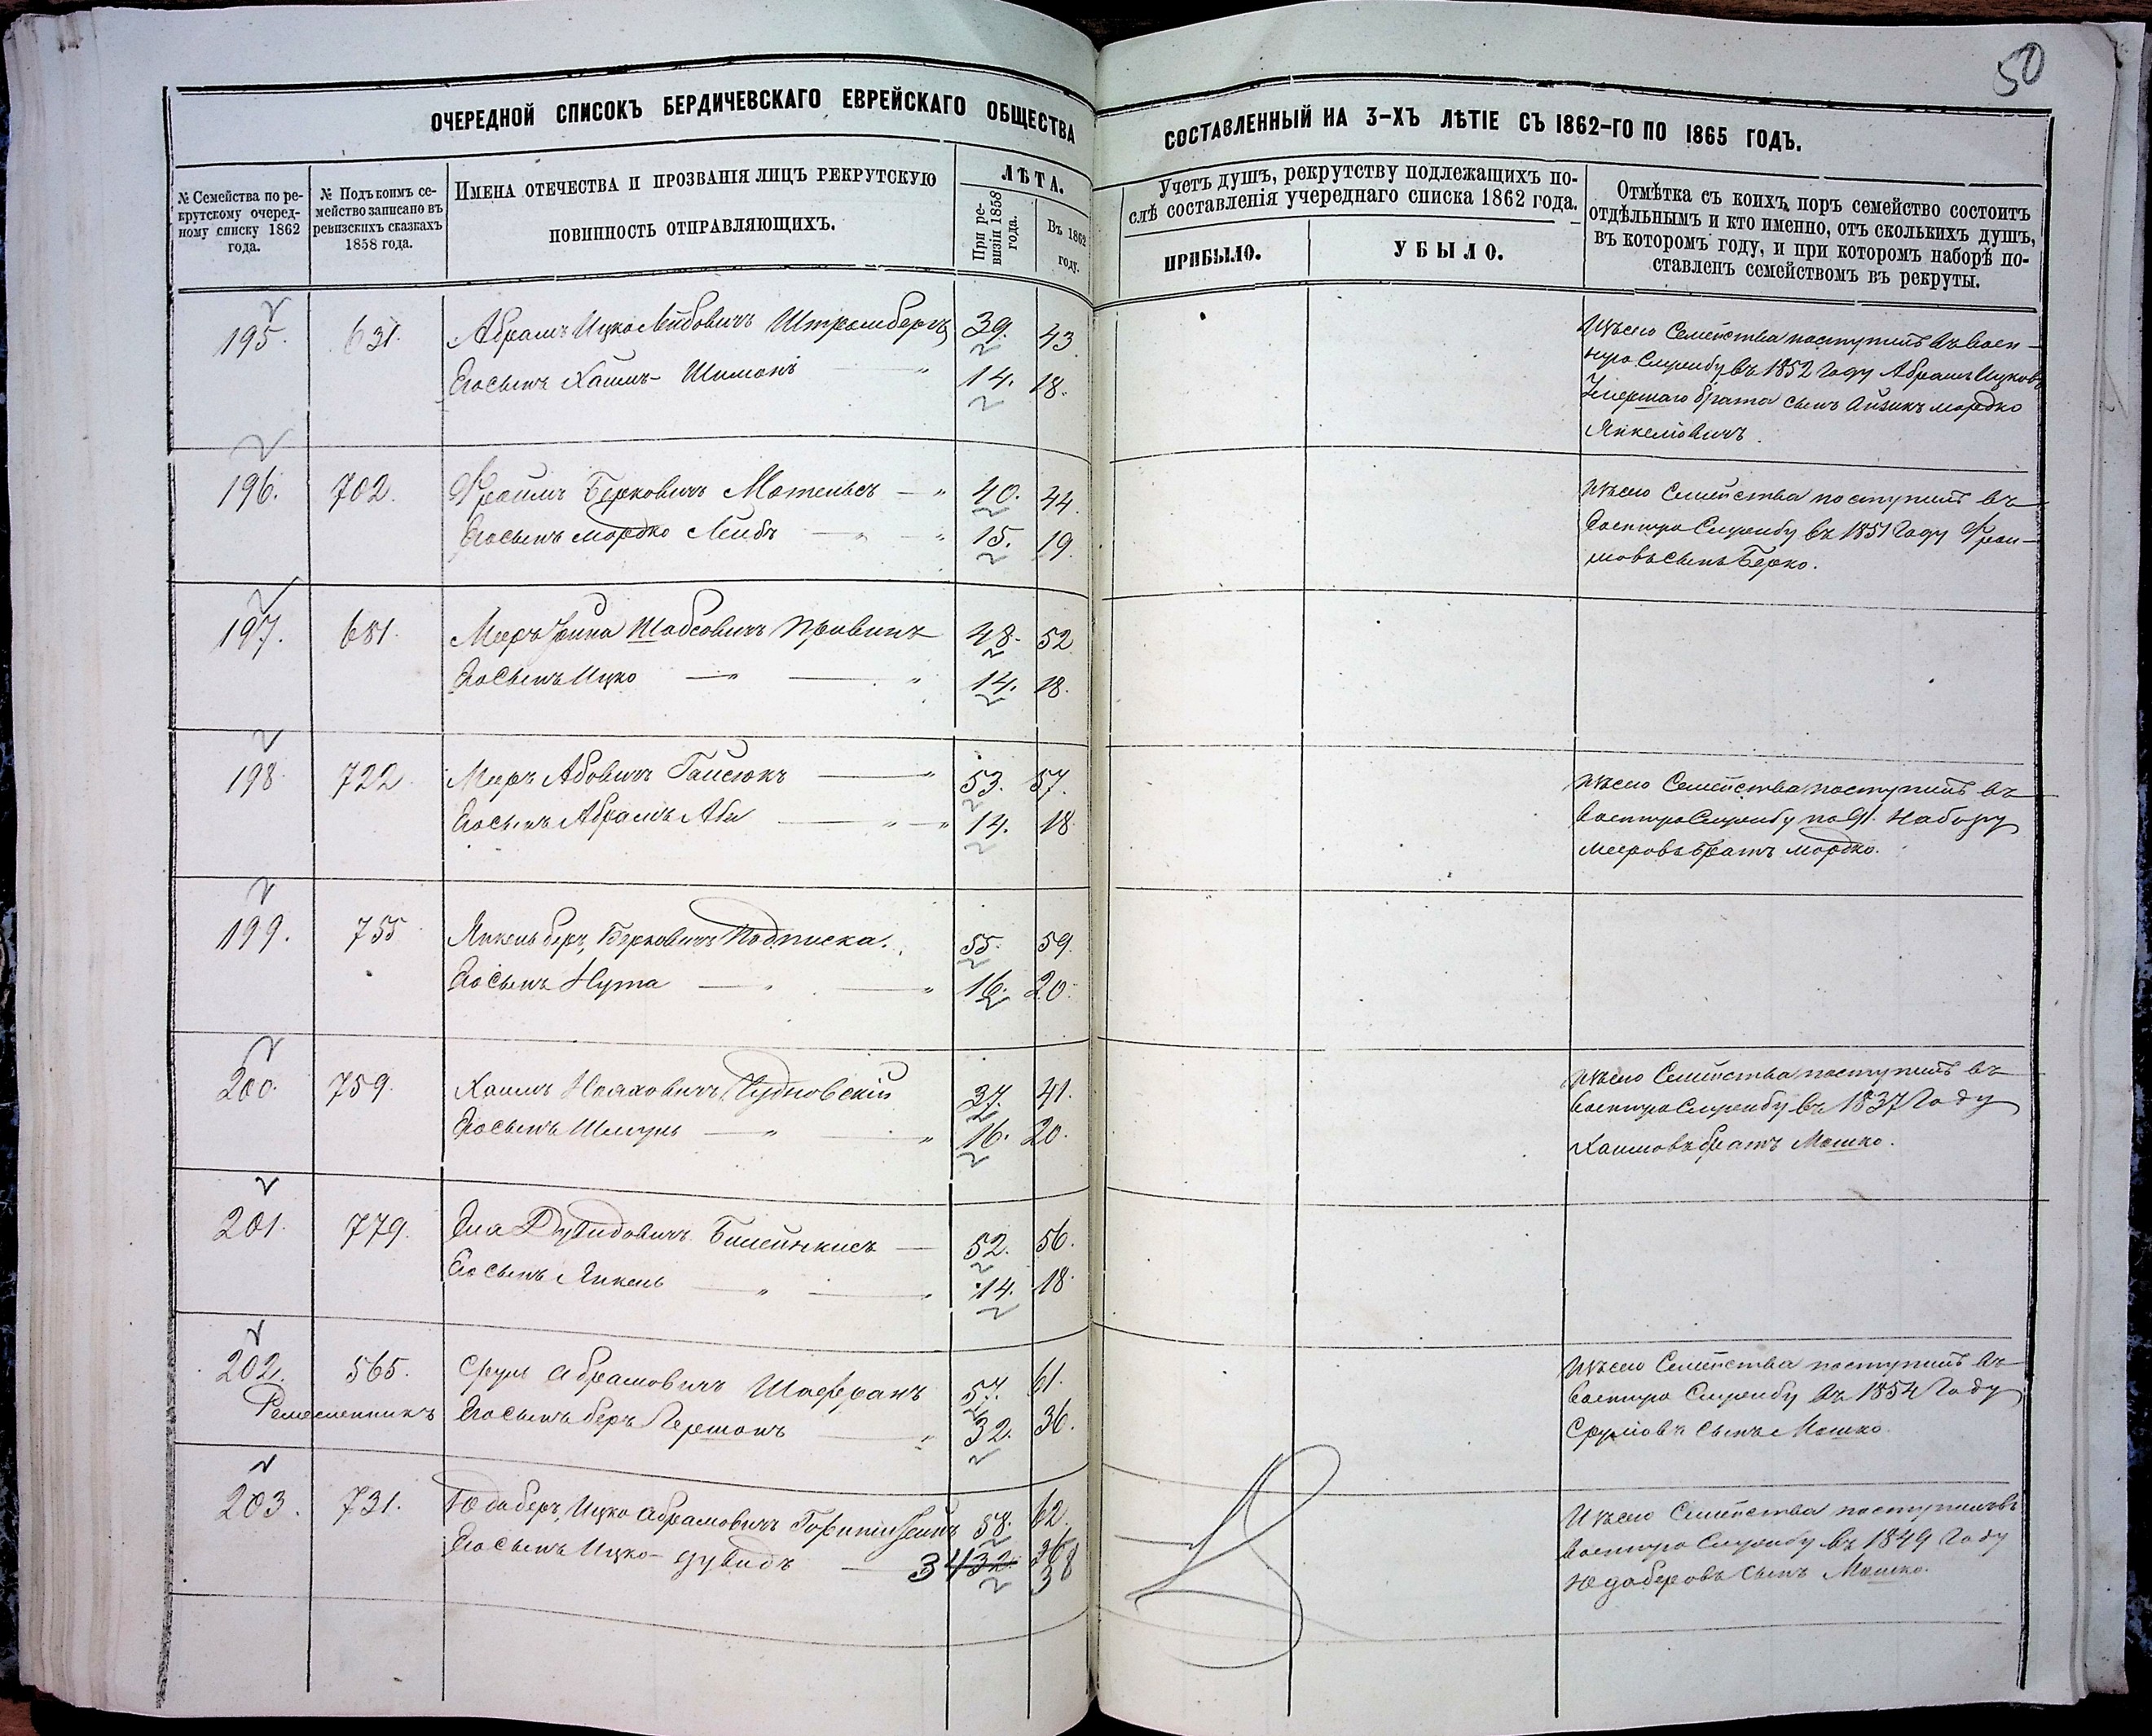 50
ОЧЕРЕДНОЙ СПИСОКЪ БЕРДИЧЕВСКАГО ЕВРЕЙСКАГО ОБЩЕСТВА СОСТАВЛЕННЫЙ НА 3-ХЪ ЛѢТІЕ СЪ 1862-ГО ПО 1865 ГОДЪ.
№ Семейства по ре-
крутскому очеред-
ному списку 1862
года.
№ Подъ коимъ се-
мейство записано въ
ревизскихъ сказкахъ
1858 года.
ИМЕНА ОТЕЧЕСТВА И ПРОЗВАНІЯ ЛИЦЪ РЕКРУТСКУЮ
ПОВИННОСТЬ ОТПРАВЛЯЮЩИХЪ.
ЛѢТА.
При ре-
визіи 1858
года.
Въ 1862
году.
Учетъ душъ, рекрутству подлежащихъ по-
слѣ составленія учереднаго списка 1862 года.
ПРИБЫЛО.
УБЫЛО.
Отмѣтка съ коихъ поръ семейство состоитъ
отдѣльнымъ и кто именно, отъ сколькихъ душъ,
въ которомъ году, и при которомъ наборѣ по-
ставленъ семействомъ въ рекруты.
195. 631. Абрамъ Ицко Лейбовичъ Штрамбергъ 39. 43.
Его сынъ Хаимъ-Шимонъ " 14. 18.
Изъ сего Семейства поступилъ въ воен-
ную Службу въ 1852 году Абрамъ Ицковъ
Умершаго брата сынъ Айзикъ Мордко
Янкелiовичъ.
196. 702. Фроимъ Берковичъ Мательсъ " 40. 44.
Его сынъ Мордко Лейбъ " " 15. 19.
Изъ сего Семейства поступилъ въ
военную Службу въ 1851 году Фрои-
мовъ сынъ Берко.
197. 681. Меръ Шабсовичъ 48. 52
Его сынъ Ицко " " 14. 18.
198. 722. Меръ Абовичъ Гайсюкъ " 53. 57.
Его сынъ Абрамъ Аба " " 14. 18
Изъ сего Семейства поступилъ въ
военную Службу по Набору
Меeровъ братъ Мордко.
199. 755 Янкель беръ Берковичъ Подписка. 55. 59.
Его сынъ Нута " " 16. 20.
200. 759. Хаимъ Чудновскій 37. 41.
Его сынъ Шмуль " " 16. 20.
Изъ сего Семейства поступилъ въ
военную Службу въ 1837 Году
Хаимовъ братъ Мошко.
201. 779. Эля Дувидовичъ Билейнкисъ 52. 56.
Его сынъ Янкель " " 14. 18.
202. 565. Сруль Абрамовичъ Шафранъ 57. 61.
Ремесленникъ Его сынъ беръ Гершонъ " 32. 36.
Изъ сего Семейства поступилъ въ
военную Службу въ 1854 Году
Срулiовъ сынъ Мошко
203. 731. Юдаберъ, Ицко Абрамовичъ 58. 62.
Его сынъ Ицко-Дувидъ 34 32. 36
38
Изъ сего Семейства поступилъ въ
военную Службу въ 1849 Году
Юдаберовъ сынъ Мошко.